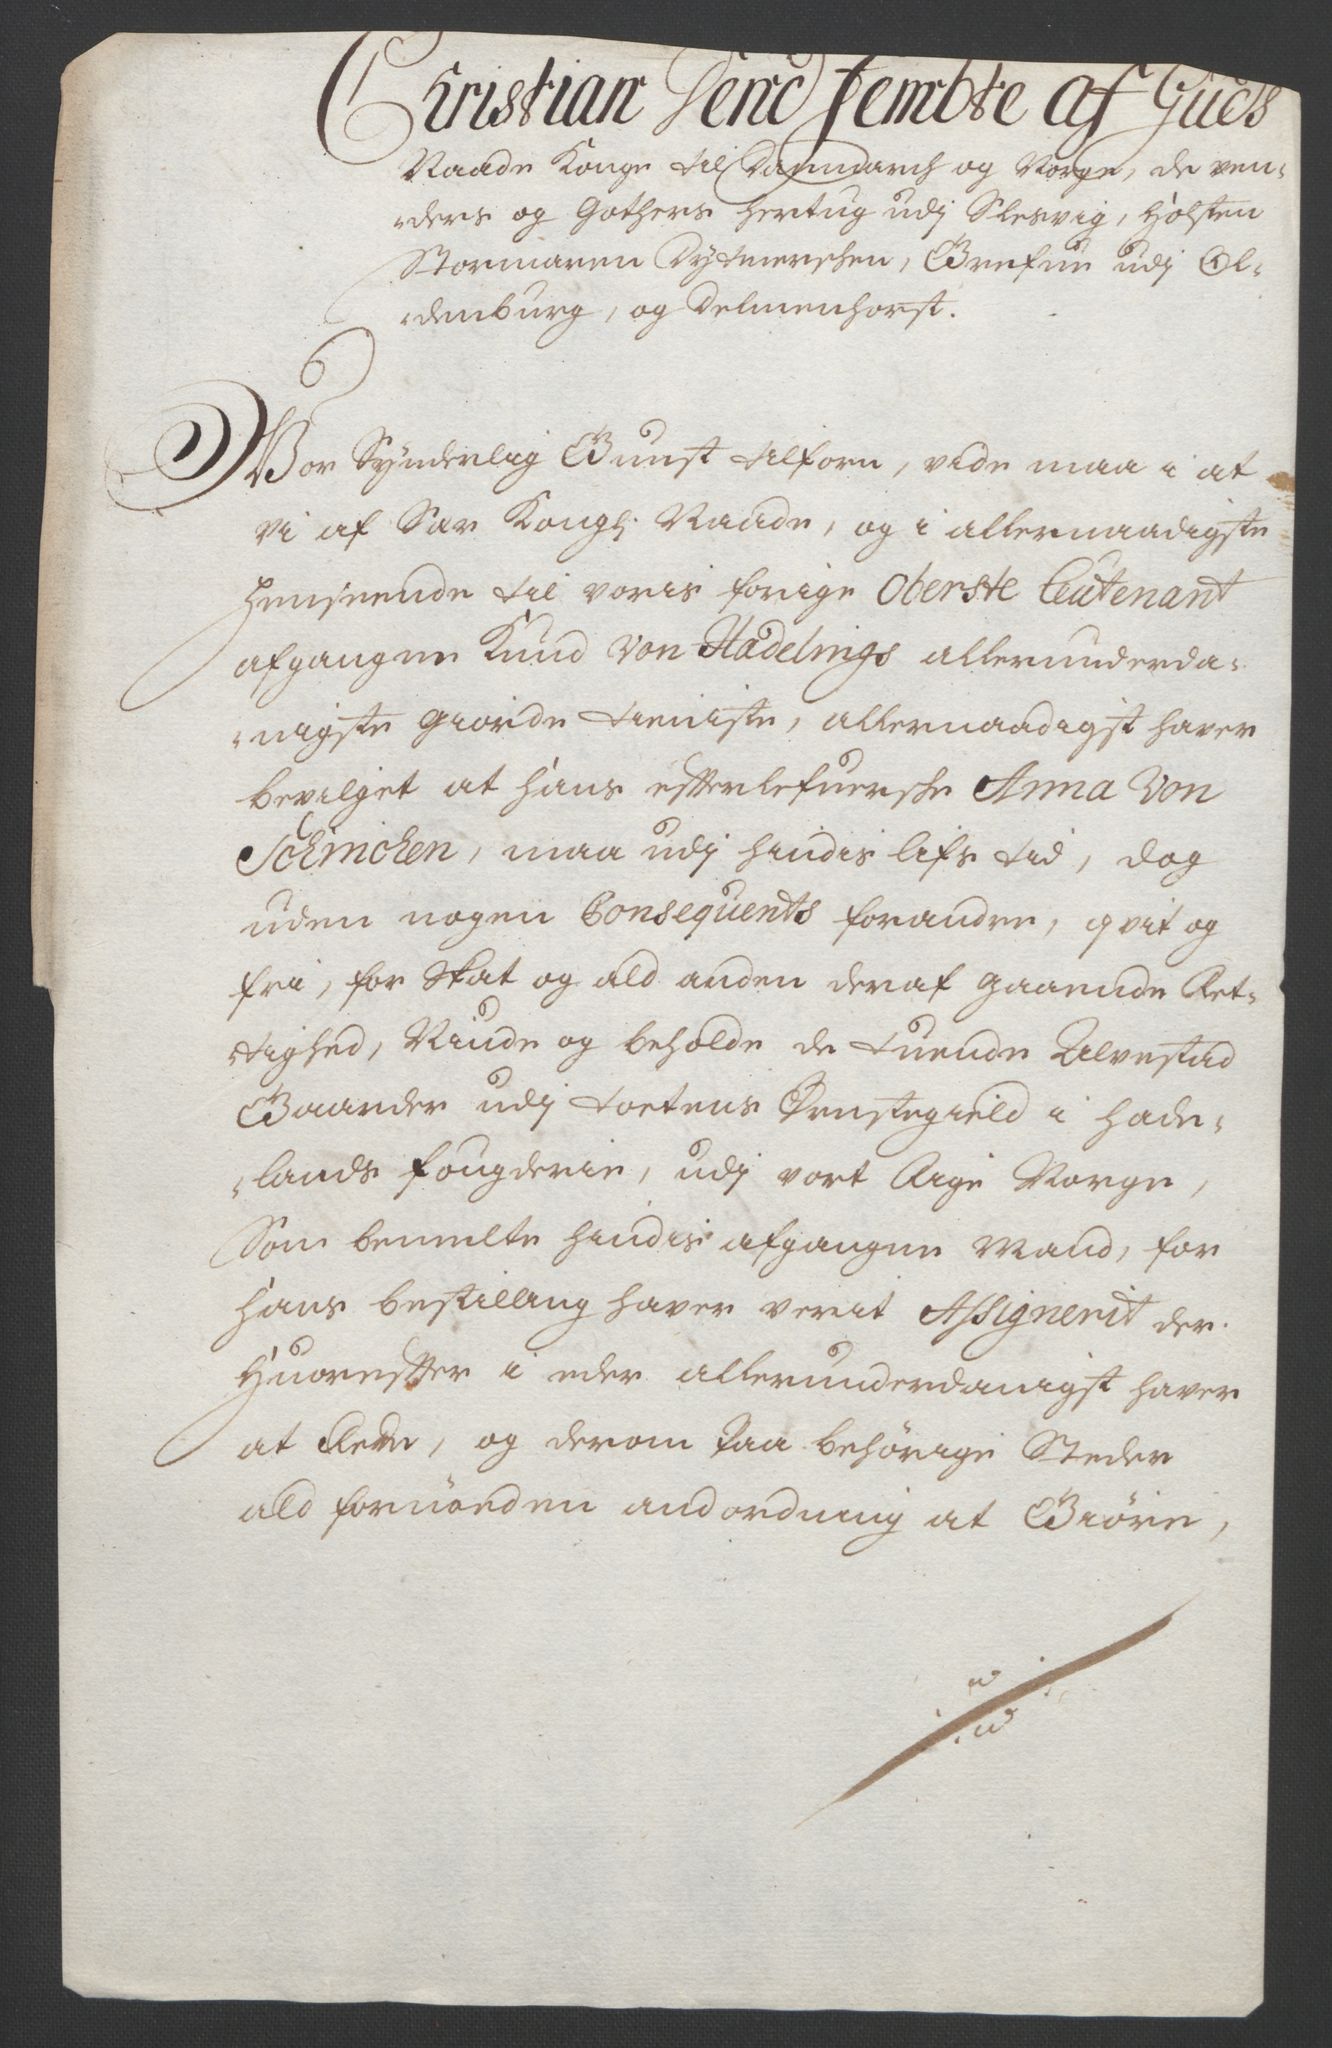 Christian Dend fembte af Guds
Naade Konge til Dannmarch og Norge, de ven-
-ders og Gothers hertug udj Slesvig, Holsten
Stormaren Dytmerschen, Grefue udj Ol-
-denburg, og Delmenhorst.
Vor Synderlig Gunst tilforn, vide maa i at
vi af Sær Kongl: Naade, og i allernaadigste
henseende til voris forige Oberste Leutenant
afgangne Knud Von Hadelings allerunderda-
-nigste giorde tieniste, allernaadigst haver
bevilget at hans efterlefuerske Anna Von
Schincken, maa udj hindis lifs tid, dog
uden nogen Consequents forandre, qvit og
fri, for Skat og ald anden deraf gaaende Ret-
-tighed, Niude og beholde de tuende Alvestad
Gaarder udj totens Prestegield i hade-
-lands fougderie, udj vort Rige Norge,
Som bemelte hindis afgangne Mand, for
hans bestilling haver verit Assignerit der.
Huorefter i eder allerunderdanigst haver
at Rette, og derom paa behörige Steder
ald fornöden andordning at Giöre,